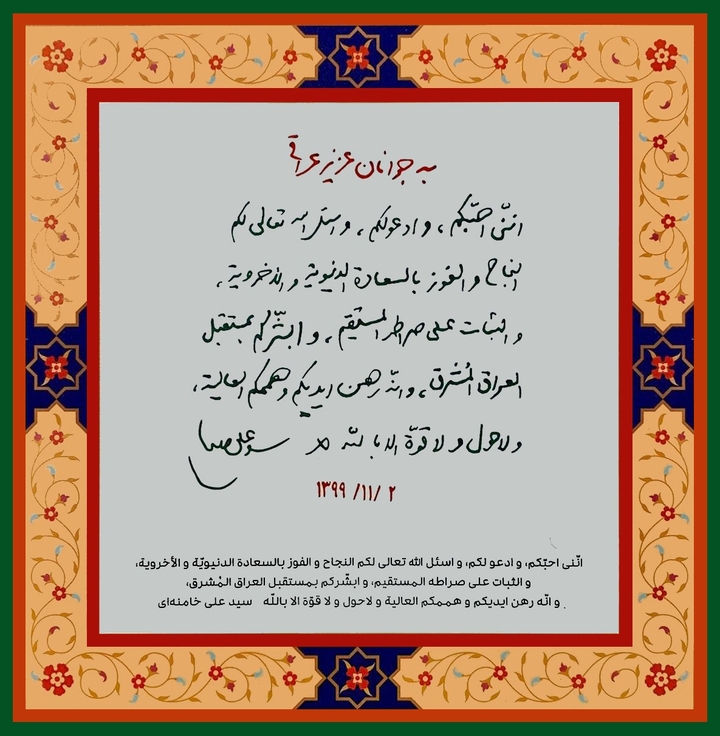 به جوانان عزیز عراقی
اننّی احبّکم، و ادعولکم، و اسئل الله تعالی لکم
النجاح و الفوز بالسعادة الدنیویة و الاخرویة،
و الثبات علی صراطه المستقیم، و ابشّرکم بمستقبل
العراق المُشرق، و انّه رهن ایدیکم و هممکم العالیة،
ولاحول و لا قوّة الا بالله سید علی خامنه‌ای
۱۳۹۹/۱۱/۲
انّنی احبّکم، و ادعو لکم، و اسئل الله تعالی لکم النجاح و الفوز بالسعادة الدنیویّة و الأخرویة،
و الثبات علی صراطه المستقیم، و ابشّرکم بمستقبل العراق المُشرق،
و انّه رهن ایدیکم و هممکم العالیة و لاحول و لا قوّة الا باللّه سید علی خامنه‌ای